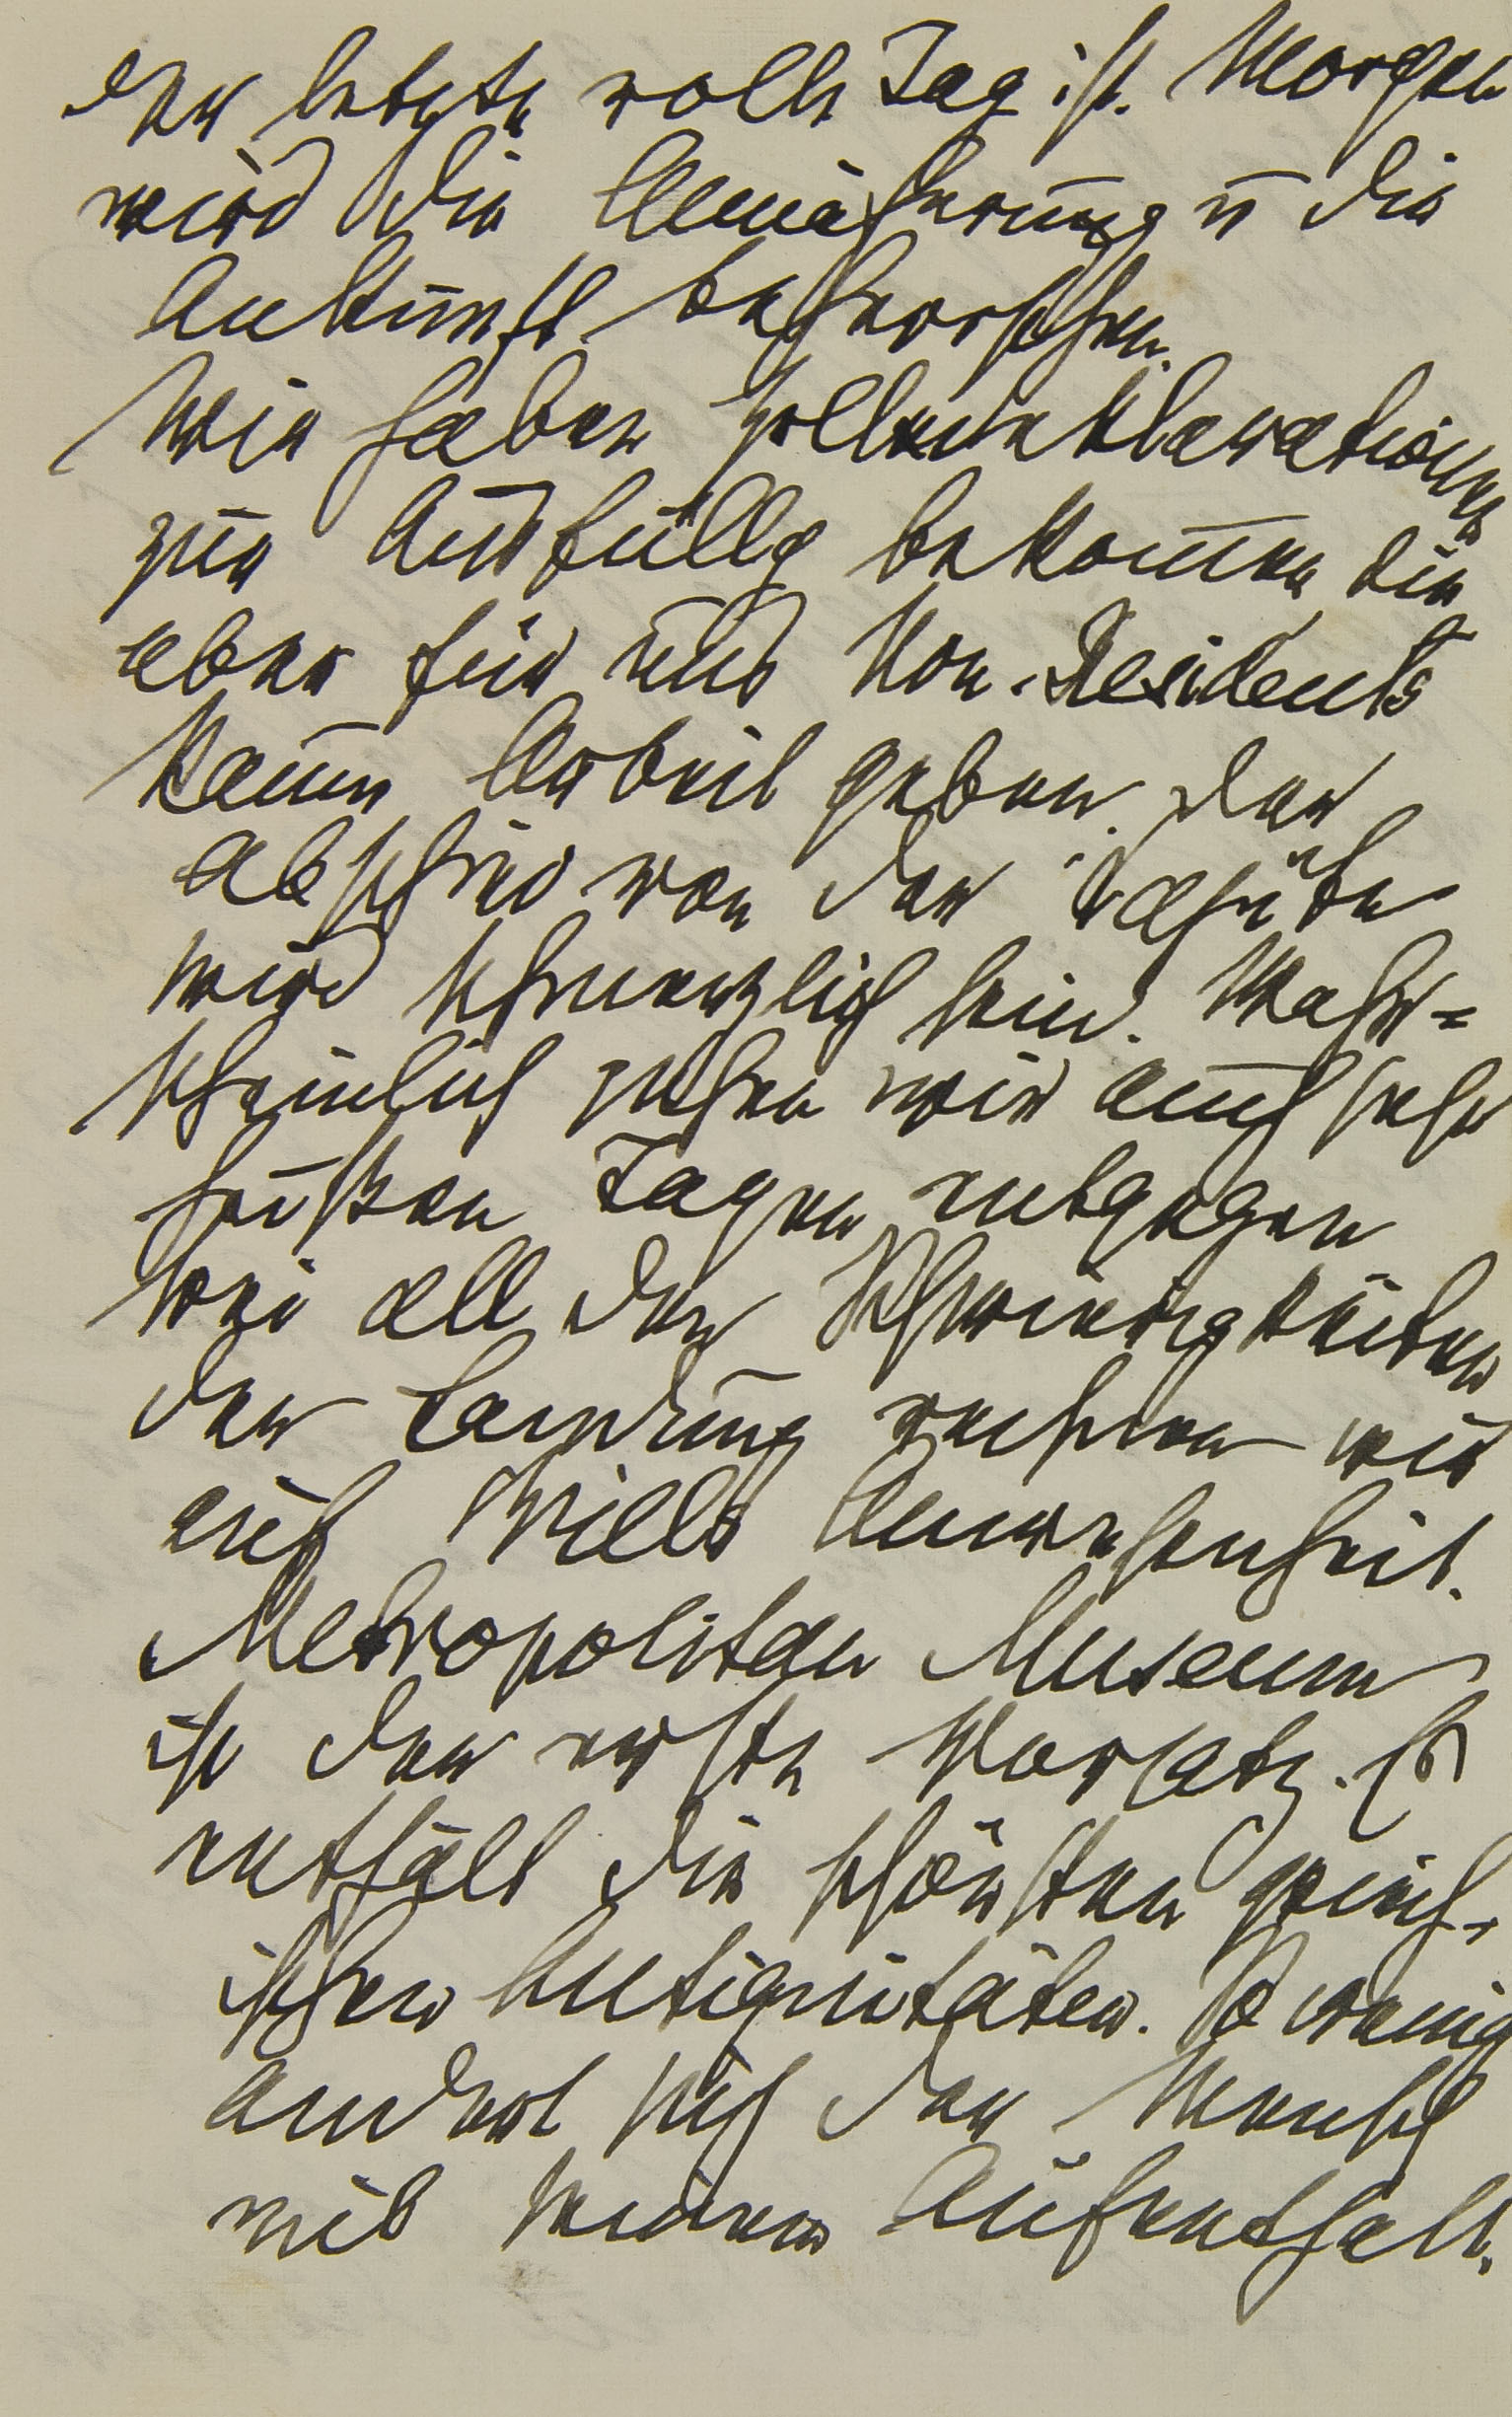 der letzte volle Tag ist. Morgen
wird die Annäherung u die
Ankunft beherrschen.
Wir haben Zolldeklarationen
zur Ausfüllg bekommen die
aber für uns Non-Residents
kaum Arbeit geben. Der
Abschied von der Kajüte
wird schmerzlich sein. Wahr=
scheinlich gehen wir auch sehr
heißen Tagen entgegen
bei all den Schwierigkeiten
der Landung rechnen wir
auf Willis Anwesenheit.
Metropolitan Museum
ist der erste Vorsatz. Es
enthält die schönsten griech-
ischen Antiquitäten. So wenig
ändert sich der Mensch
mit seinem Aufenthalt.